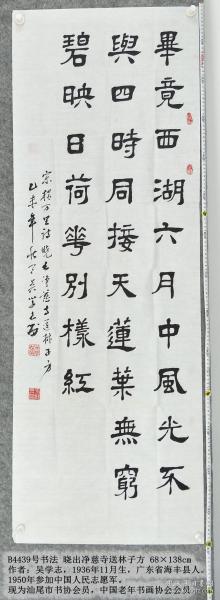 畢竟西湖六月中風光不
與四時同接天蓮葉無窮
碧映日荷華別樣紅
宗楊万里詩晓出淨慈寺送林子方
乙未年秋月吳学志书
B4439号书法 晓出净慈寺送林子方 68×138cm
作者：吴学志，1936年11月生，广东省海丰县人。
1950年参加中国人民志愿军。
现为汕尾市书协会员，中国老年书画协会会员